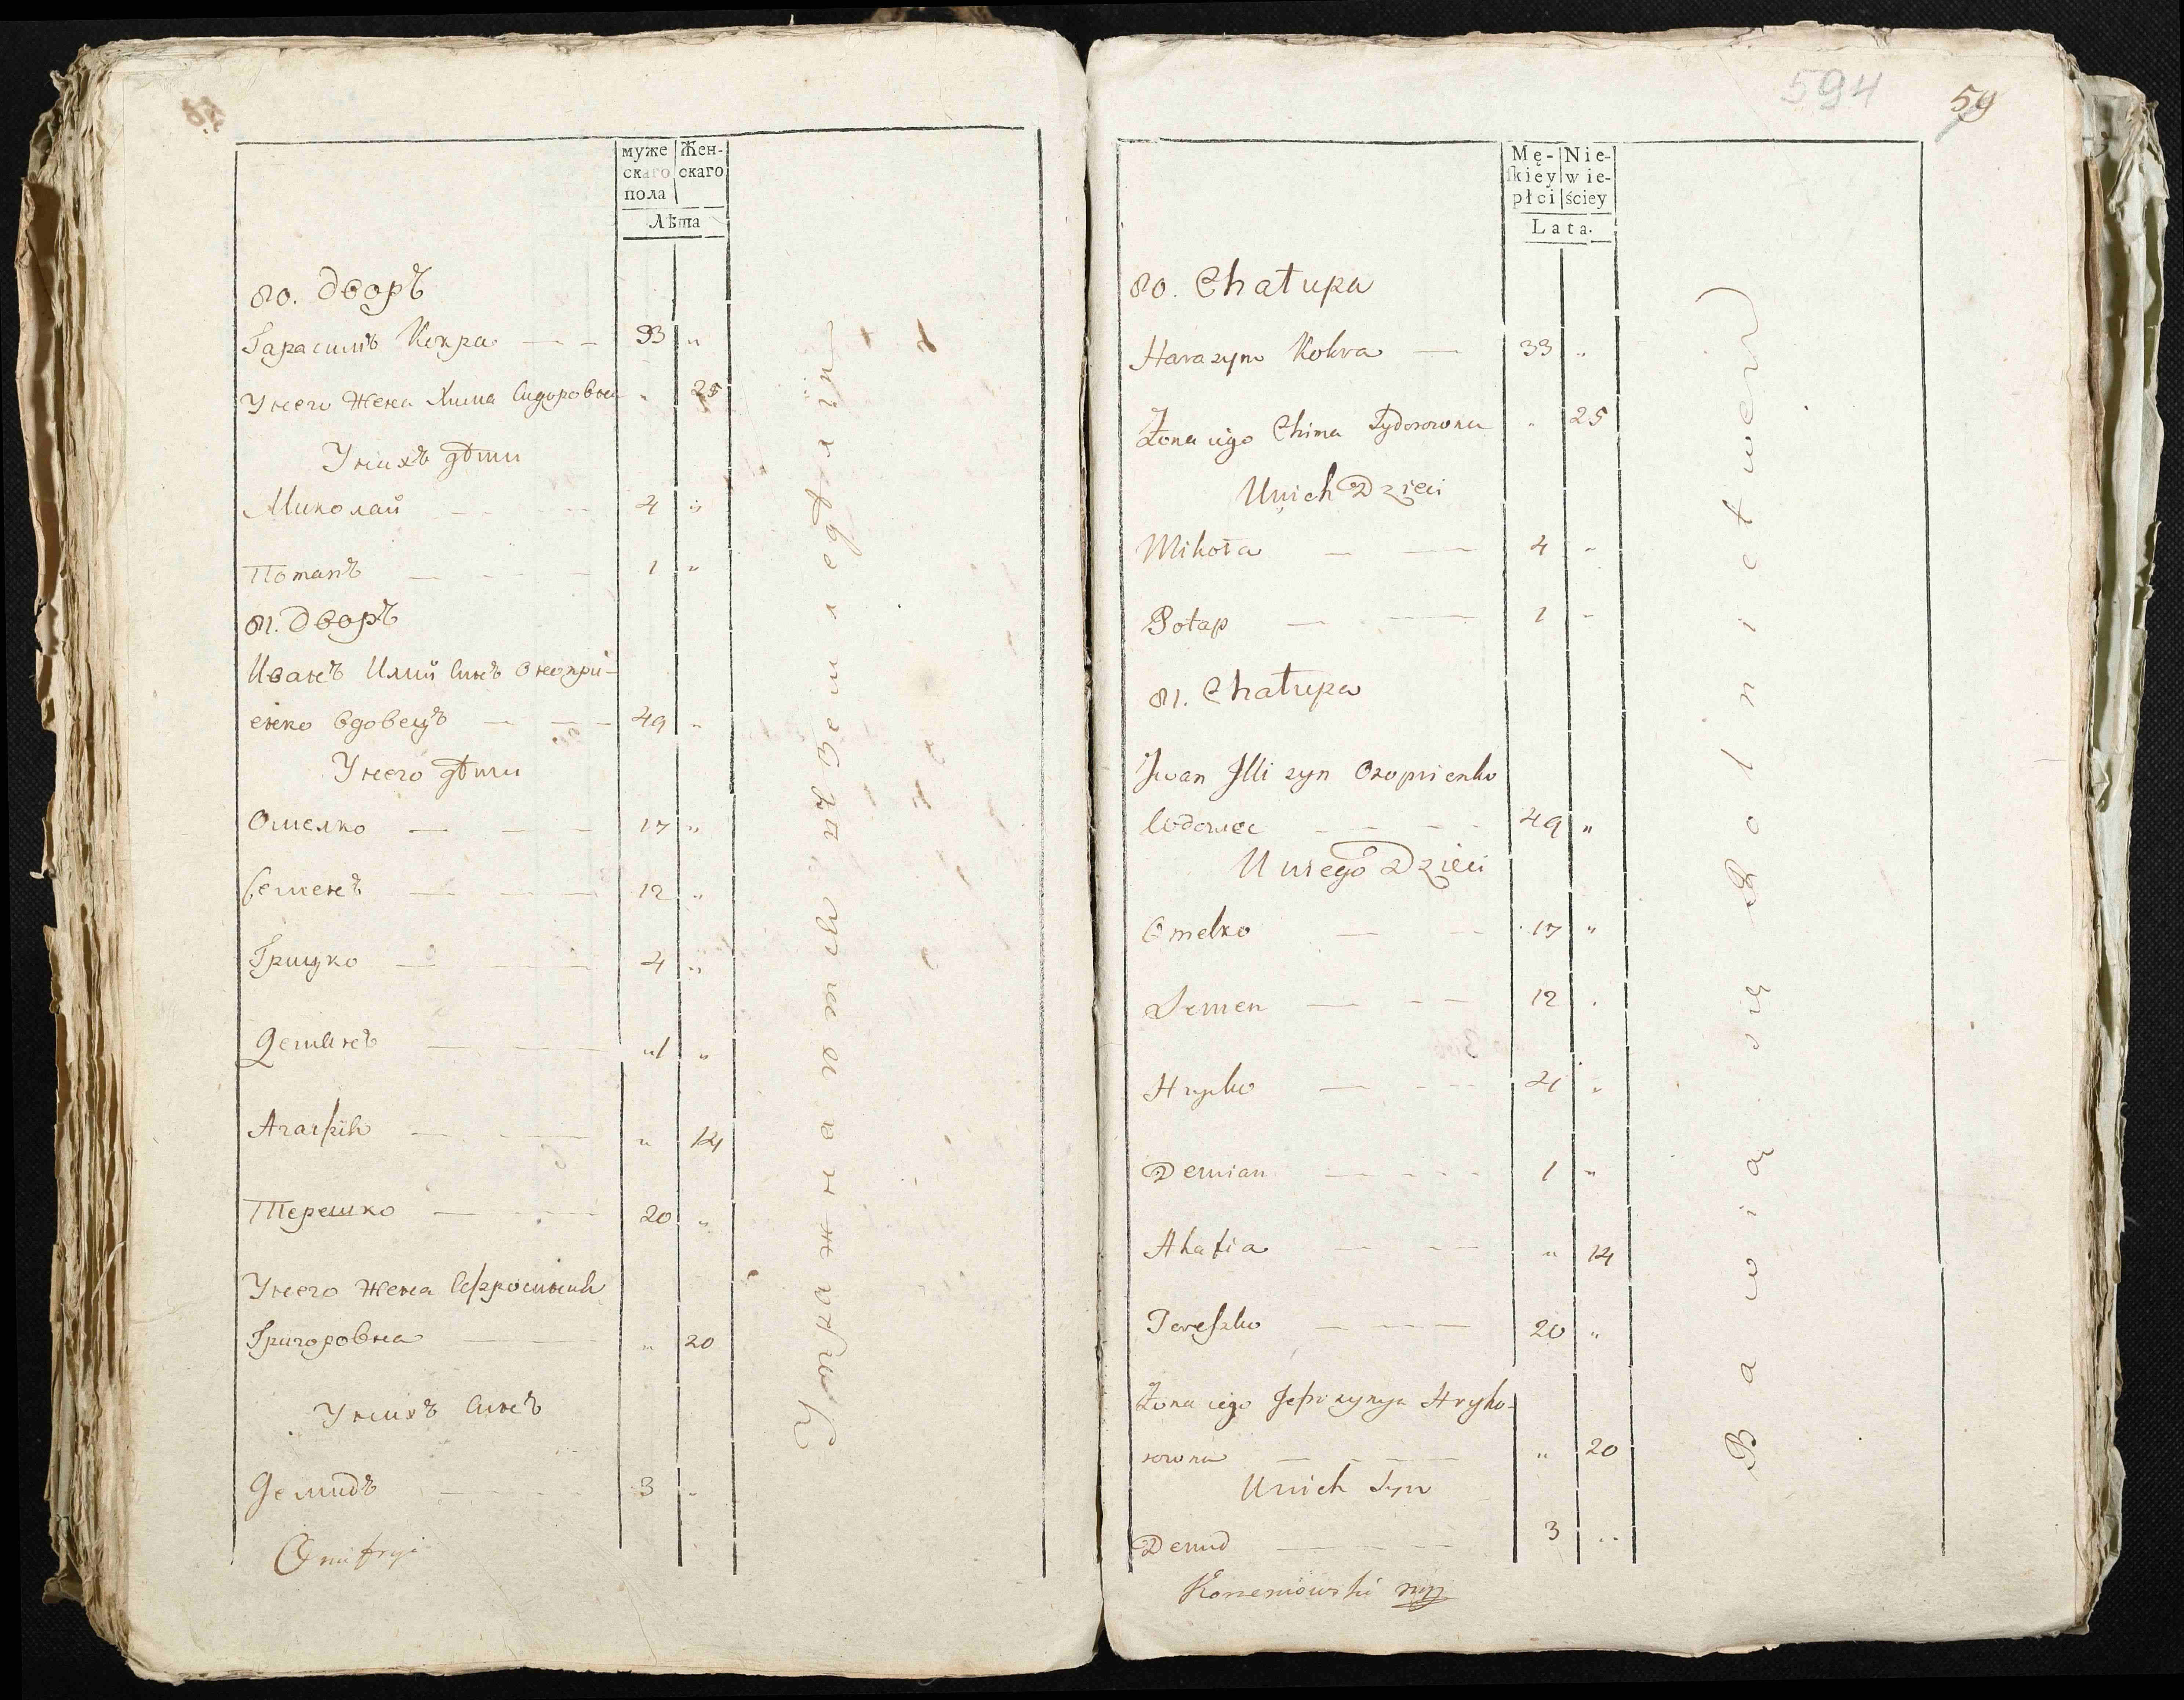 муже
скаго
пола
Жен-
скаго
Лѣта
80. Дворъ
Гарасимъ Кокра — — 33 "
У него жена Хима Сидоровна " 25
У нихъ дѣти
Миколай — — 4 "
Потапъ — — — 1 "
81. Дворъ
Иванъ Илий Синъ Онопри-
енко вдовецъ — — — 49 "
У него дѣти
Омелко — — — 17 "
Семенъ — — — 12 "
Грицко — — — 4 "
Демянъ — — — 1 "
Агафія — — — " 14
Терешко — — — 20 "
У него жена Ефросинія
Григоровна — " 20
У нихъ Синъ
Демидъ — — — 3 "
Onufryi
Упражнаются въ Земледѣліи
594
59
Mę-
skiey
płci
Nie-
wie-
ściey
Lata.
80. Chałupa
Harazym Kokra — 33 "
Żona iego Chima Sydorowna " 25
U nich Dzieci
Mikoła — — 4 "
Potap — — 1 "
81. Chałupa
Iwan Illi syn Onoprienko
Wdowiec — — — 49 "
U niego Dzieci
Omelko — — 17 "
Semen — — — 12 "
Hrycko — — — 4 "
Demian — — — 1 "
Ahafia — — — " 14
Tereszko — — — 20 "
Żona iego Jefrozynija Hryho-
rowna — — — " 20
U nich Syn
Demid — — — 3 "
Korzeniowski mp
Bawią się Rolnictwem